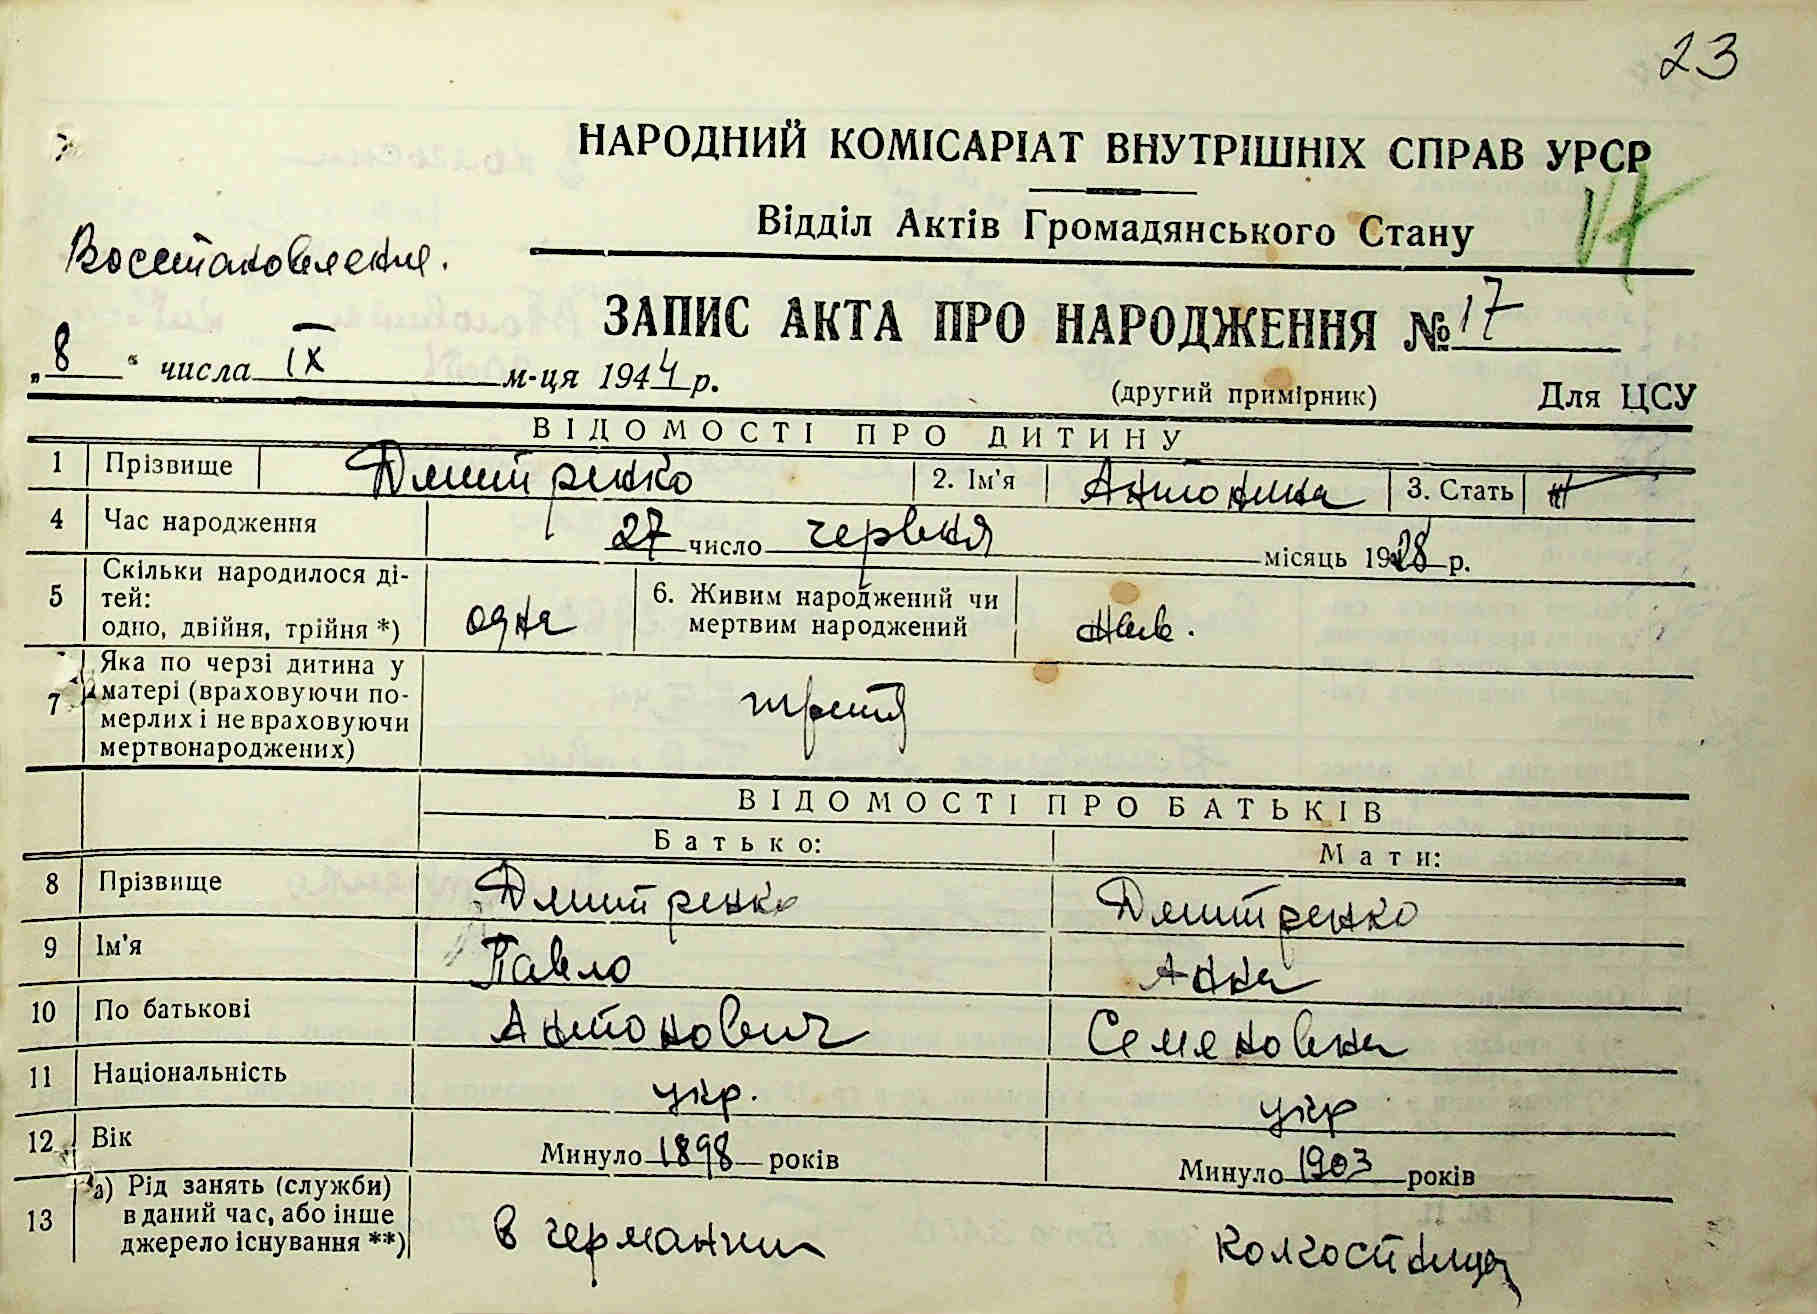 23
НАРОДНИЙ КОМІСАРІАТ ВНУТРІШНІХ СПРАВ УРСР
Відділ Актів Громадянського Стану
Восстановление.
ЗАПИС АКТА ПРО НАРОДЖЕННЯ № 17
„8“ числа IX м-ця 1944 р.
(другий примірник) Для ЦСУ
ВІДОМОСТІ ПРО ДИТИНУ
1 Прізвище Дмитренко 2. Ім'я Антонина 3. Стать
4 Час народження 27 число червня місяць 1928 р.
5 Скільки народилося ді-
тей:
одно, двійня, трійня *) одна
6. Живим народжений чи
мертвим народжений жив.
7 Яка по черзі дитина у
матері (враховуючи по-
мерлих і не враховуючи
мертвонароджених) третя
ВІДОМОСТІ ПРО БАТЬКІВ
Батько: Мати:
8 Прізвище Дмитренко Дмитренко
9 Ім'я Павло Анна
10 По батькові Антонович Семеновна
11 Національність укр. укр
12 Вік Минуло 1898 років Минуло 1903 років
13 а) Рід занять (служби)
в даний час, або інше
джерело існування **) в германии колгостница